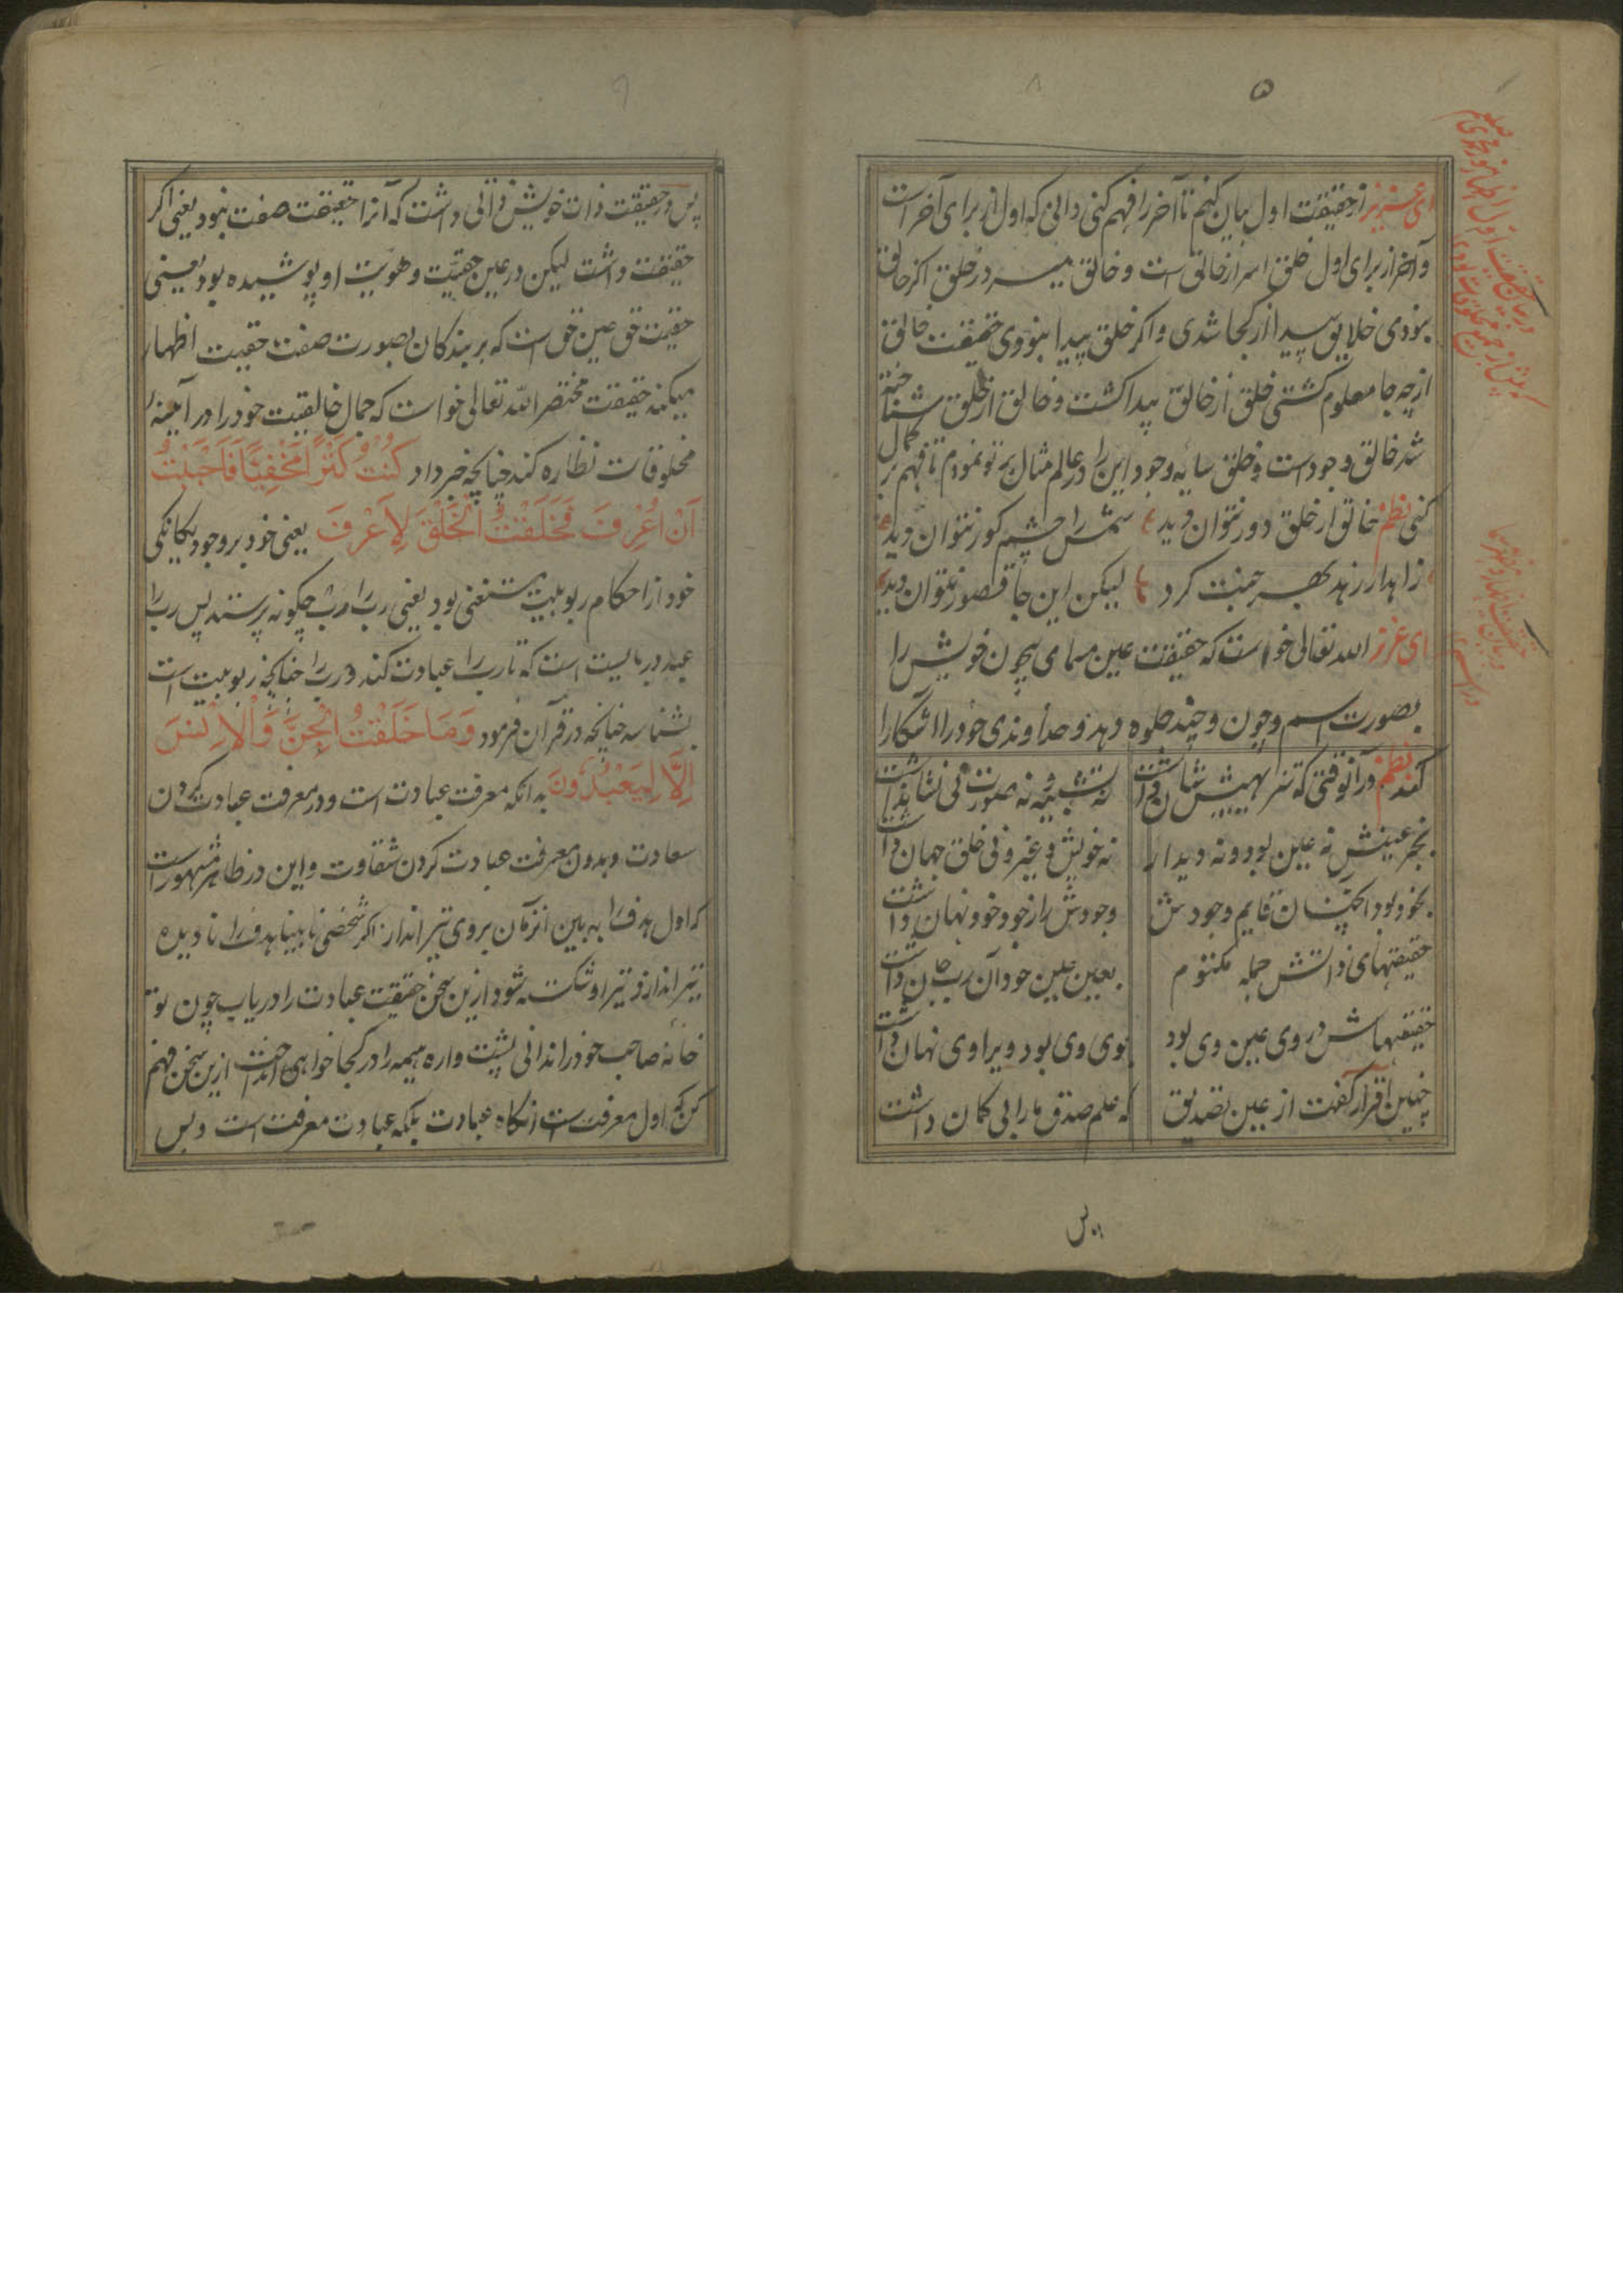 ۵
ای عزیز از حقیقت اول بیان کنم تا آخر را فهم کنی و دانی که اول از برای آخر است
و آخر از برای اول خلق اسرار خالق است و خالق سر در خلق اگر خالق
نبودی خلایق پیدا از کجا شدی و اگر خلق پیدا نبودی حقیقت خالق
از چه جا معلوم گشتی خلق از خالق پیدا گشت و خالق از خلق شناخته
شد خالق وجود است و خلق سایه وجود این را در عالم مثال بر تو نمودم تا فهم بر کمال
کنی نظم خالق از خلق دور نتوان دید شمس را چشم کور نتوان دید
زاهد ار زهد بهر جنت کرد لیکن این جا قصور نتوان دید
ای عزیز الله تعالی خواست که حقیقت عین مسمای بیچون خویش را
بصورت اسم و چون و چند جلوه دهد و خداوندی خود را آشکارا
کند نظم در آنوقتی که تنزیهیش شان داشت نه تشبیه نه صورت نی نشان داشت
بجز عینش نه عین بود و نه دیدار نه خویش و غیر و نی خلق جهان داشت
بخود بود آنچنان قایم وجودش وجودش راز خود خود نهان داشت
حقیقتهای ذاتش جمله مکتوم بعین عین خود آن رب جان داشت
حقیقتهاش در وی عین وی بود بوی وی بود ویرا وی نهان داشت
چنین اقرار گفت از عین تصدیق که علم صدق ما را بی کمان داشت
پس
پس در حقیقت ذات خویش ذاتی داشت که آنرا حقیقت صفت نبود یعنی اکر
حقیقت داشت لیکن در عین حقیّت و هویت او پوشیده بود یعنی
حقیت حق عین حق است که بر بندکان بصورت صفت حقیت اظهار
میکند حقیقت مختصر الله تعالی خواست که جمال خالقیت خود را در آیینهٔ
مخلوقات نظاره کند چنانچه خبر داد کُنْتُ کَنْزًا مَخْفِیًّا فَاَحْبَبْتُ
اَنْ اُعْرِفَ فَخَلَقْتُ الْخَلْقَ لِاُعْرِفَ یعنی خود بر وجود یکانکی
خود از احکام ربوبیت مستغنی بود یعنی رب را رب چکونه پرستد پس رب را
عبد در بایست است که تا رب را عبادت کند و رب را چنانچه ربوبیت است
بشناسد چنانچه در قرآن فرمود وَمَا خَلَقْتُ الْجِنَّ وَالْاِنْسَ
اِلَّا لِیَعْبُدُونَ بدانکه معرفت عبادت است و در معرفت عبادت کردن
سعادت و بدون معرفت عبادت کردن شقاوت و این در ظاهر مشهور است
که اول هدف را به بین انزمان بروی تیر انداز اکر شخصی نابینا هدف را نا دیده
تیر اندازد تیر او شکسته شود ازین سخن حقیقت عبادت را دریاب چون تو
خانهٔ صاحب خود را ندانی پشت واره هیمه را در کجا خواهی انداخت ازین سخن فهم
کن که اول معرفت است انکاه عبادت بلکه عبادت معرفت است و بس